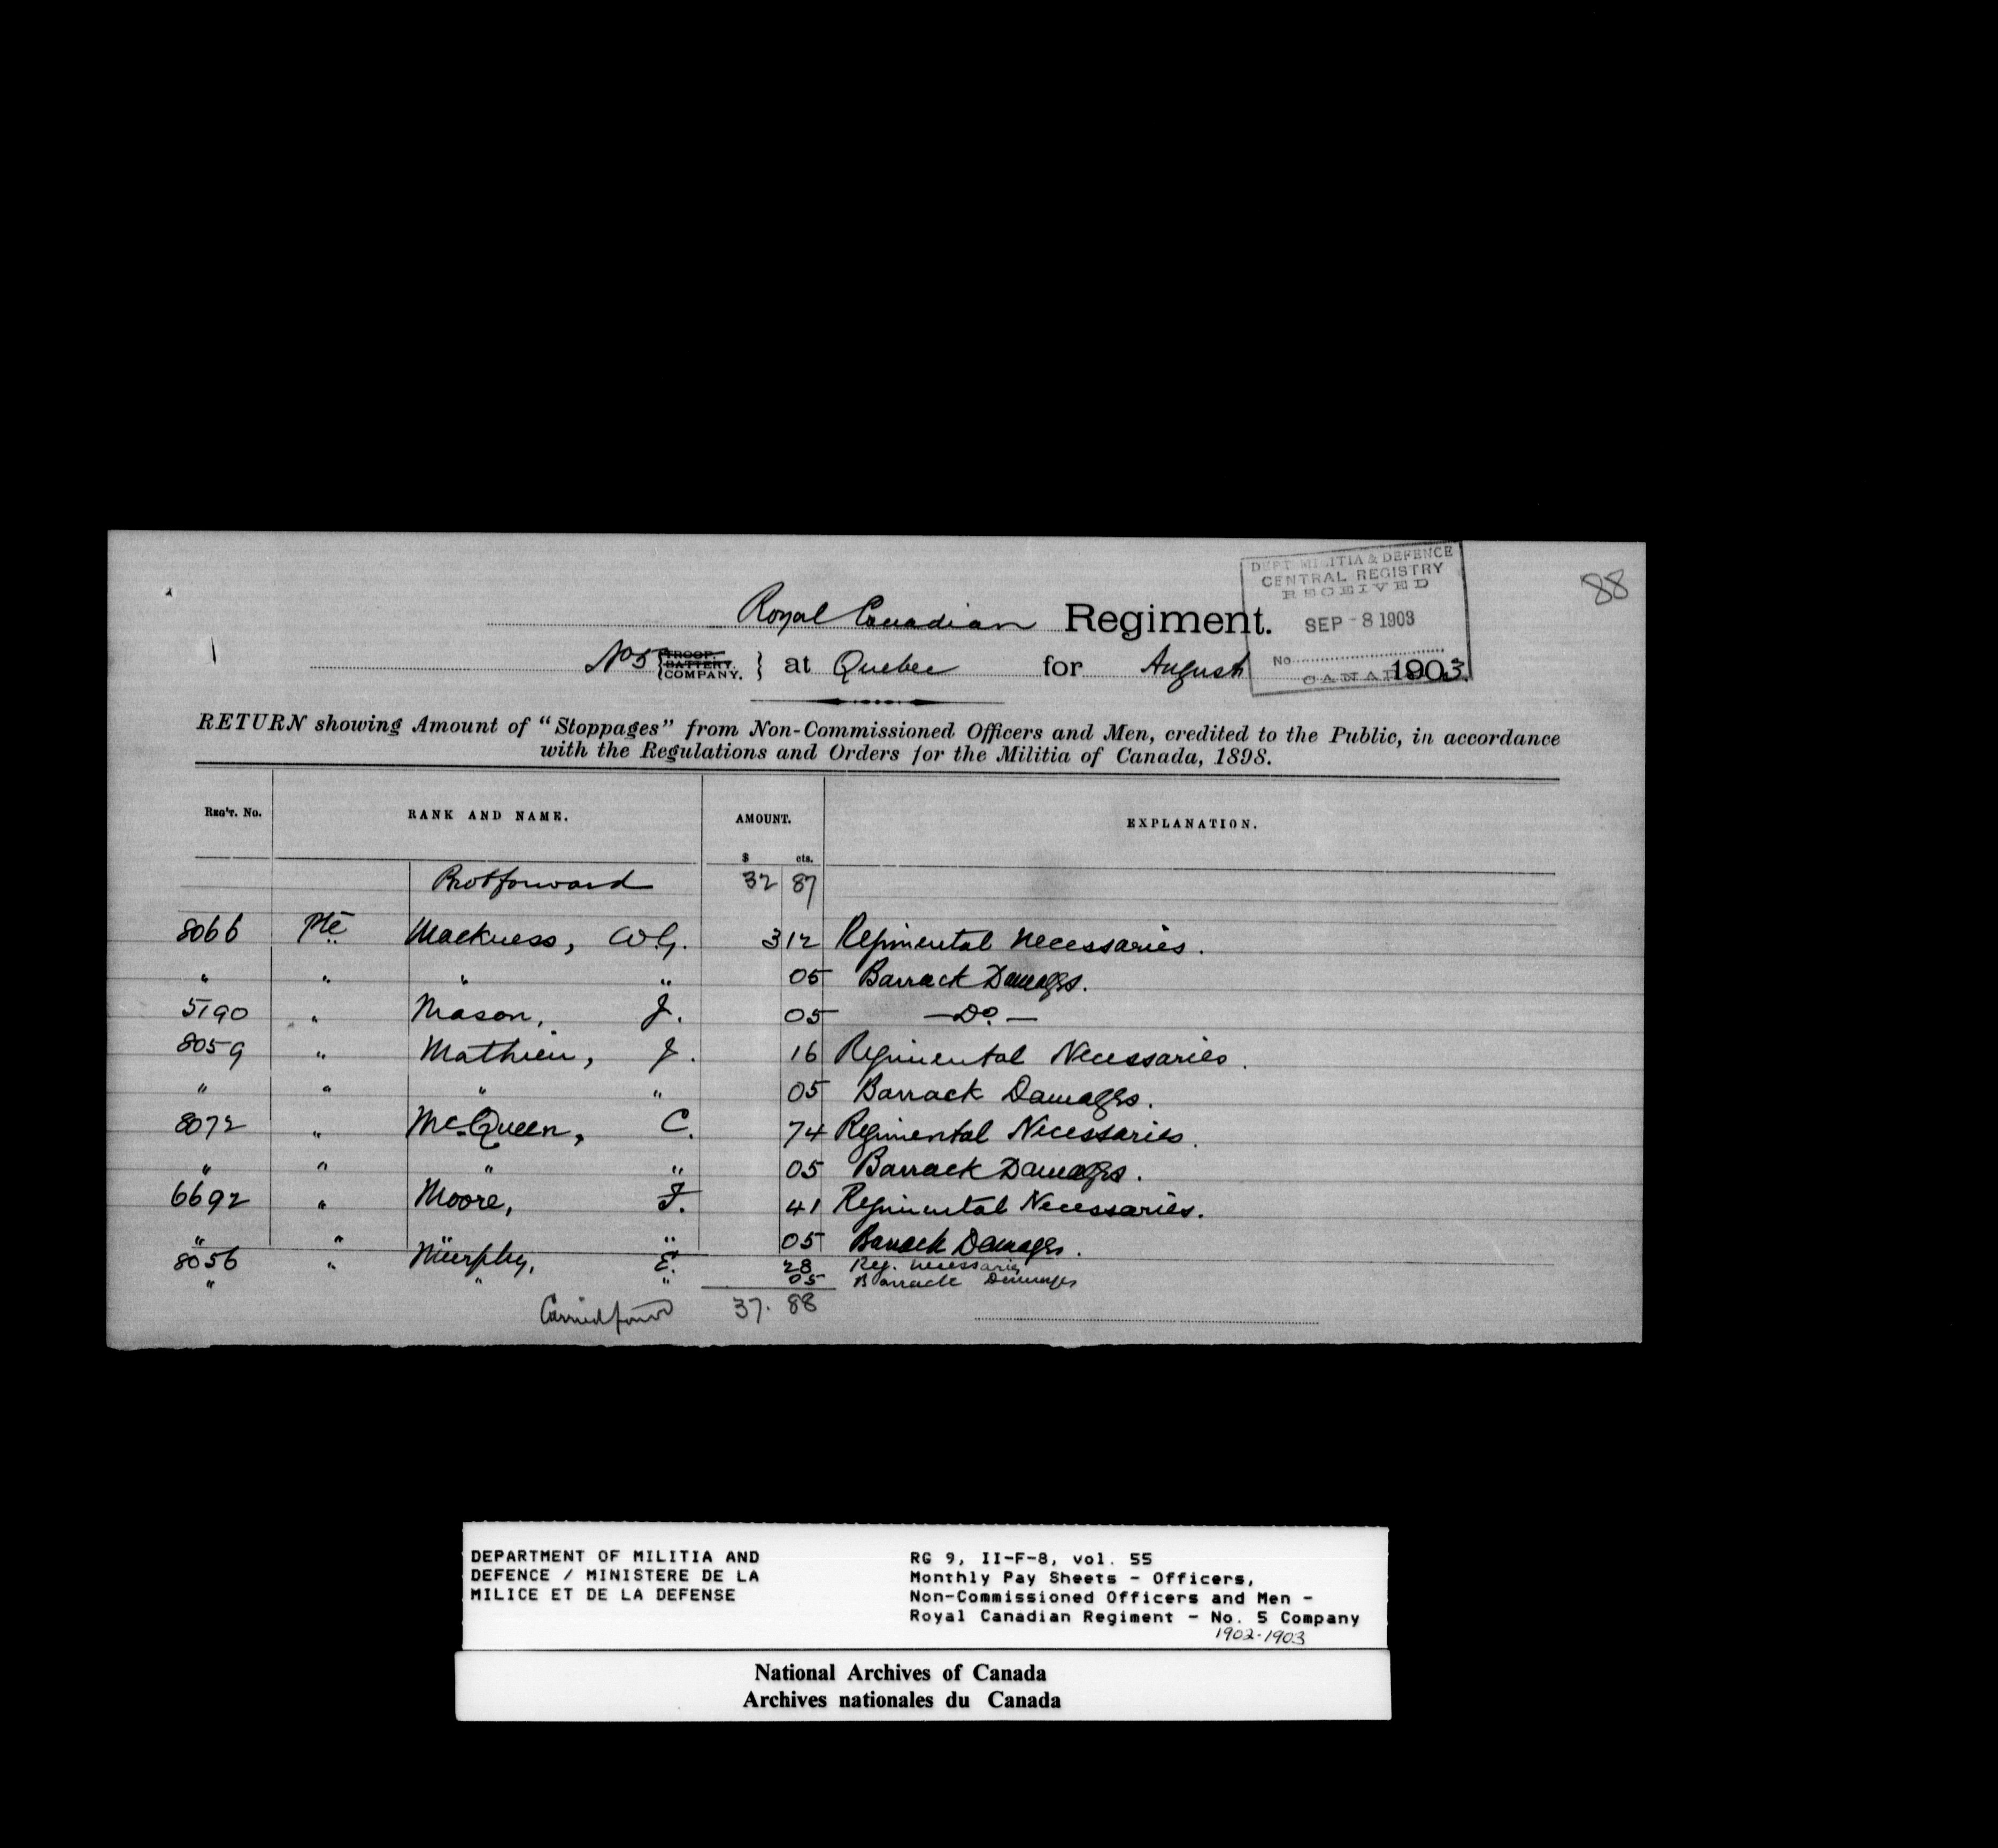 DEPT. MILITIA & DEFENCE
CENTRAL REGISTRY
RECEIVED
SEP - 8 1903
No
CANADA
88
Royal Canadian Regiment.
No 5 { TROOP. BATTERY. COMPANY. } at Quebec for August 1903.
RETURN showing Amount of "Stoppages" from Non-Commissioned Officers and Men, credited to the Public, in accordance
with the Regulations and Orders for the Militia of Canada, 1898.
REG'T. No. RANK AND NAME. AMOUNT. EXPLANATION.
$ cts.
Brot forward 32 87
8066 Pte Mackness, W.G. 3 12 Regimental Necessaries.
" " " " 05 Barrack Damages.
5190 " Mason, J. 05 — Do —
8059 " Mathieu, J. 16 Regimental Necessaries.
" " " " 05 Barrack Damages.
8072 " McQueen, C. 74 Regimental Necessaries.
" " " " 05 Barrack Damages.
6692 " Moore, F. 41 Regimental Necessaries.
" " " 05 Barrack Damages.
8056 " Murphy, E. 28 Reg. Necessaries
" " " 05 Barrack Damages
Carried forwd 37. 88
DEPARTMENT OF MILITIA AND
DEFENCE / MINISTERE DE LA
MILICE ET DE LA DEFENSE
RG 9, II-F-8, vol. 55
Monthly Pay Sheets - Officers,
Non-Commissioned Officers and Men -
Royal Canadian Regiment - No. 5 Company
1902-1903
National Archives of Canada
Archives nationales du Canada